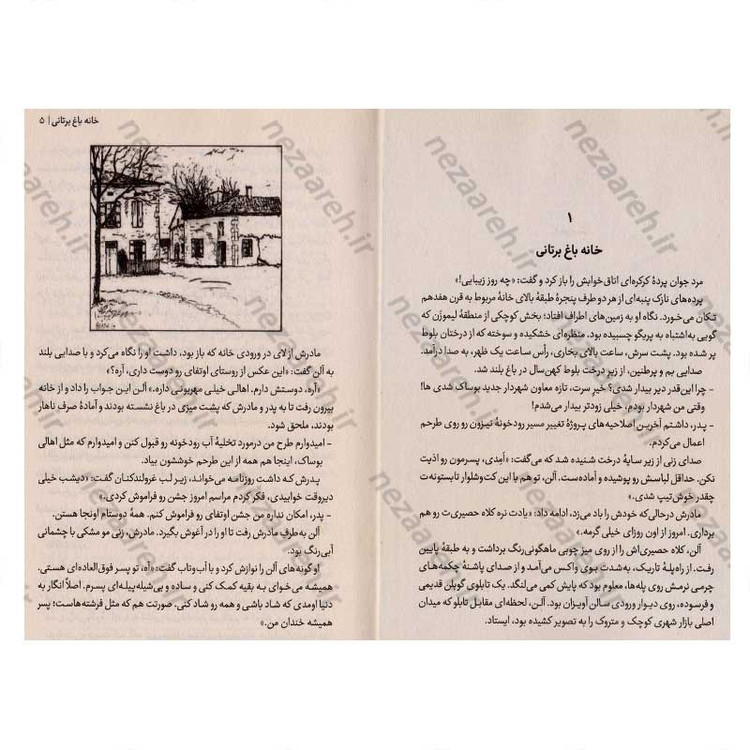 ۱
خانه باغ برتانی
مرد جوان پردهٔ کرکره‌ای اتاق‌خوابش را باز کرد و گفت: «چه روز زیبایی!»
پرده‌های نازک پنبه‌ای از هر دو طرف پنجرهٔ طبقهٔ بالای خانهٔ مربوط به قرن هفدهم
تکان می‌خورد. نگاه او به زمین‌های اطراف افتاد؛ بخش کوچکی از منطقهٔ لیموزن که
گویی به‌اشتباه به پریگو چسبیده بود. منظره‌ای خشکیده و سوخته که از درختان بلوط
پر شده بود. پشت سرش، ساعت بالای بخاری، رأس ساعت یک ظهر، به صدا درآمد.
صدایی بم و پرطنین، از زیر درخت بلوط کهن‌سال در باغ بلند شد.
- چرا این‌قدر دیر بیدار شدی؟ خیر سرت، تازه معاون شهردار جدید بوساک شدی ها!
وقتی من شهردار بودم، خیلی زودتر بیدار می‌شدم!
- پدر، داشتم آخرین اصلاحیه‌های پروژهٔ تغییر مسیر رودخونهٔ نیزون رو روی طرحم
اعمال می‌کردم.
صدای زنی از زیر سایهٔ درخت شنیده شد که می‌گفت: «اَمِدی، پسرمون رو اذیت
نکن. حداقل لباسش رو پوشیده و آماده‌ست. آلن، تو هم با این کت‌وشلوار تابستونه‌ت
چقدر خوش‌تیپ شدی.»
مادرش درحالی‌که خودش را باد می‌زد، ادامه داد: «یادت نره کلاه حصیری‌ت رو هم
برداری. امروز از اون روزای خیلی گرمه.»
آلن، کلاه حصیری‌اش را از روی میز چوبی ماهگونی‌رنگ برداشت و به طبقهٔ پایین
رفت. از راه‌پلهٔ تاریک، به‌شدت بوی واکس می‌آمد و از صدای پاشنهٔ چکمه‌های
چرمی نرمش روی پله‌ها، معلوم بود که پایش کمی می‌لنگد. یک تابلوی گوبلن قدیمی
و فرسوده، روی دیوار ورودی سالن آویزان بود. آلن، لحظه‌ای مقابل تابلو که میدان
اصلی بازار شهری کوچک و متروک را به تصویر کشیده بود، ایستاد.
خانه باغ برتانی | ۵
مادرش از لای در ورودی خانه که باز بود، داشت او را نگاه می‌کرد و با صدایی بلند
به آلن گفت: «این عکس از روستای اوتفای رو دوست داری، آره؟»
«آره، دوستش دارم. اهالی خیلی مهربونی داره.» آلن این جواب را داد و از خانه
بیرون رفت تا به پدر و مادرش که پشت میزی در باغ نشسته بودند و آمادهٔ صرف ناهار
بودند، ملحق شود.
- امیدوارم طرح من درمورد تخلیهٔ آب رودخونه رو قبول کنن و امیدوارم که مثل اهالی
بوساک، اینجا هم همه از این طرحم خوششون بیاد.
پدرش که داشت روزنامه می‌خواند، زیر لب غرولندکنان گفت: «دیشب خیلی
دیروقت خوابیدی، فکر کردم مراسم امروز جشن رو فراموش کردی.»
- پدر، امکان نداره من جشن اوتفای رو فراموش کنم. همهٔ دوستام اونجا هستن.
آلن به‌طرف مادرش رفت تا او را در آغوش بگیرد. مادرش، زنی مو مشکی با چشمانی
آبی‌رنگ بود.
او گونه‌های آلن را نوازش کرد و با آب‌وتاب گفت: «آه، تو پسر فوق‌العاده‌ای هستی.
همیشه می‌خوای به بقیه کمک کنی و ساده و بی‌شیله‌پیله‌ای پسرم. اصلاً انگار به
دنیا اومدی که شاد باشی و همه رو شاد کنی. صورتت هم که مثل فرشته‌هاست؛ پسر
همیشه خندان من.»
nezaareh.ir